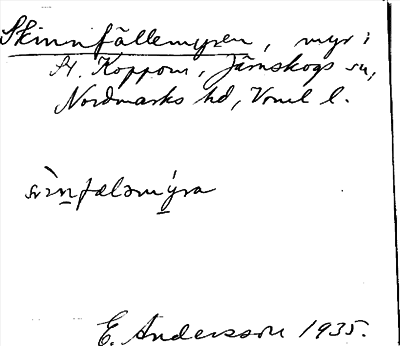 Skinnfällemyren, myr i
St. Koppom, Järnskogs sn,
Nordmarks hd, Vrml l.
E. Andersson 1935.